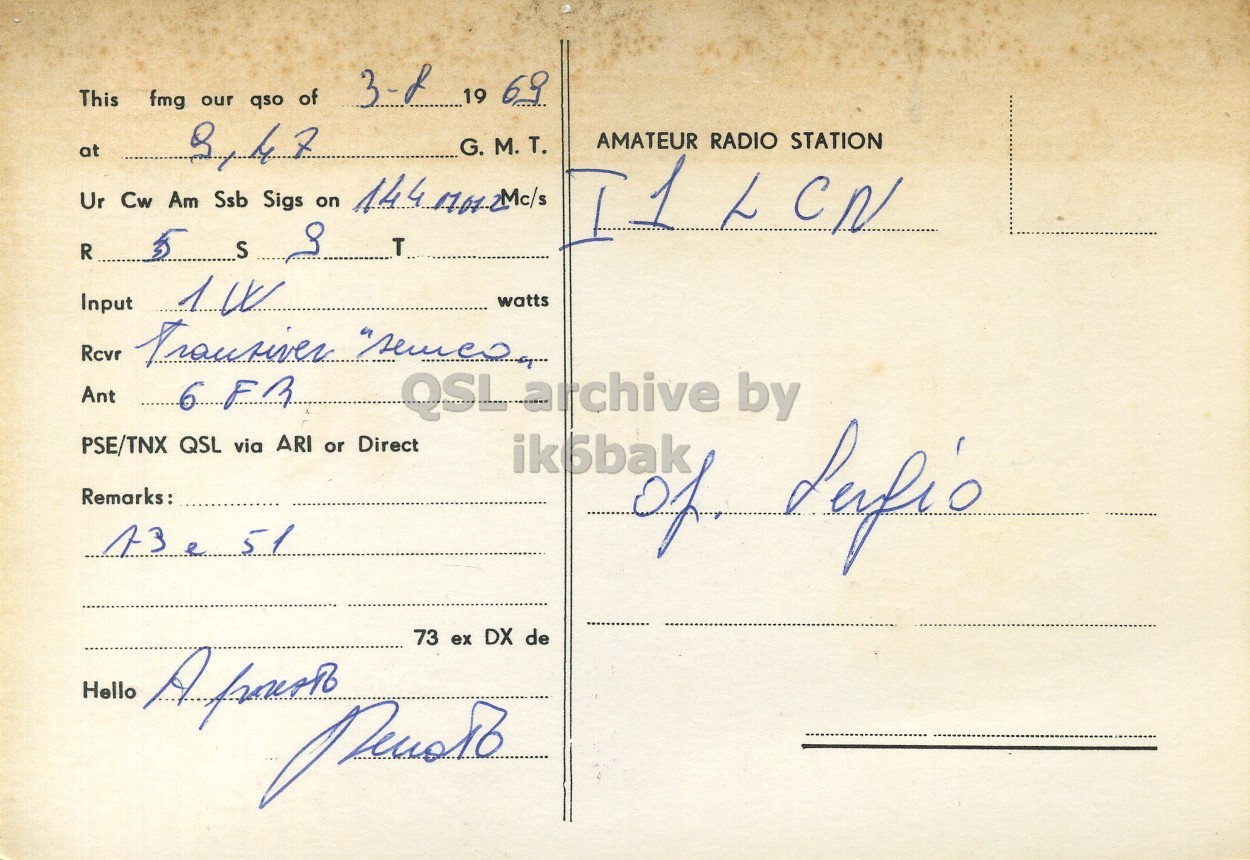 This fmg our qso of 3-8 1969
at 9,47 G. M. T.
Ur Cw Am Ssb Sigs on 144 Mc/s
R 5 S 9 T
Input 1 W watts
Rcvr Transiver "Semco"
Ant 6 FR
PSE/TNX QSL via ARI or Direct
Remarks:
73 e 51
73 ex DX de
Hello A presto
Renato
AMATEUR RADIO STATION
I1 LCN
QSL archive by
ik6bak
op. Sergio